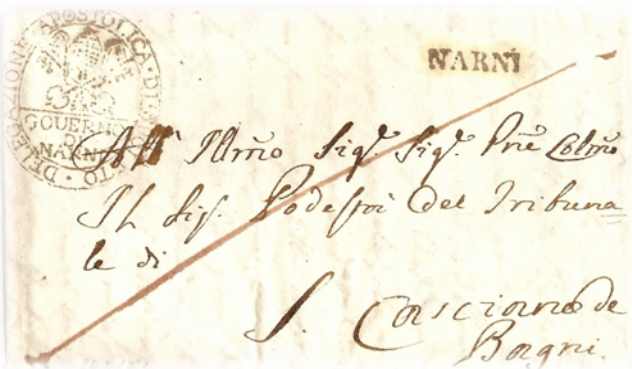 DELEGAZIONE APOSTOLICA DI SPOLETO
GOUERNO
DI
NARNI
NARNI
All' Illmo Sigr. Sigr. Pne Colmo
Il Sigr. Podestà del Tribuna
le di
S. Casciano de
Bagni.